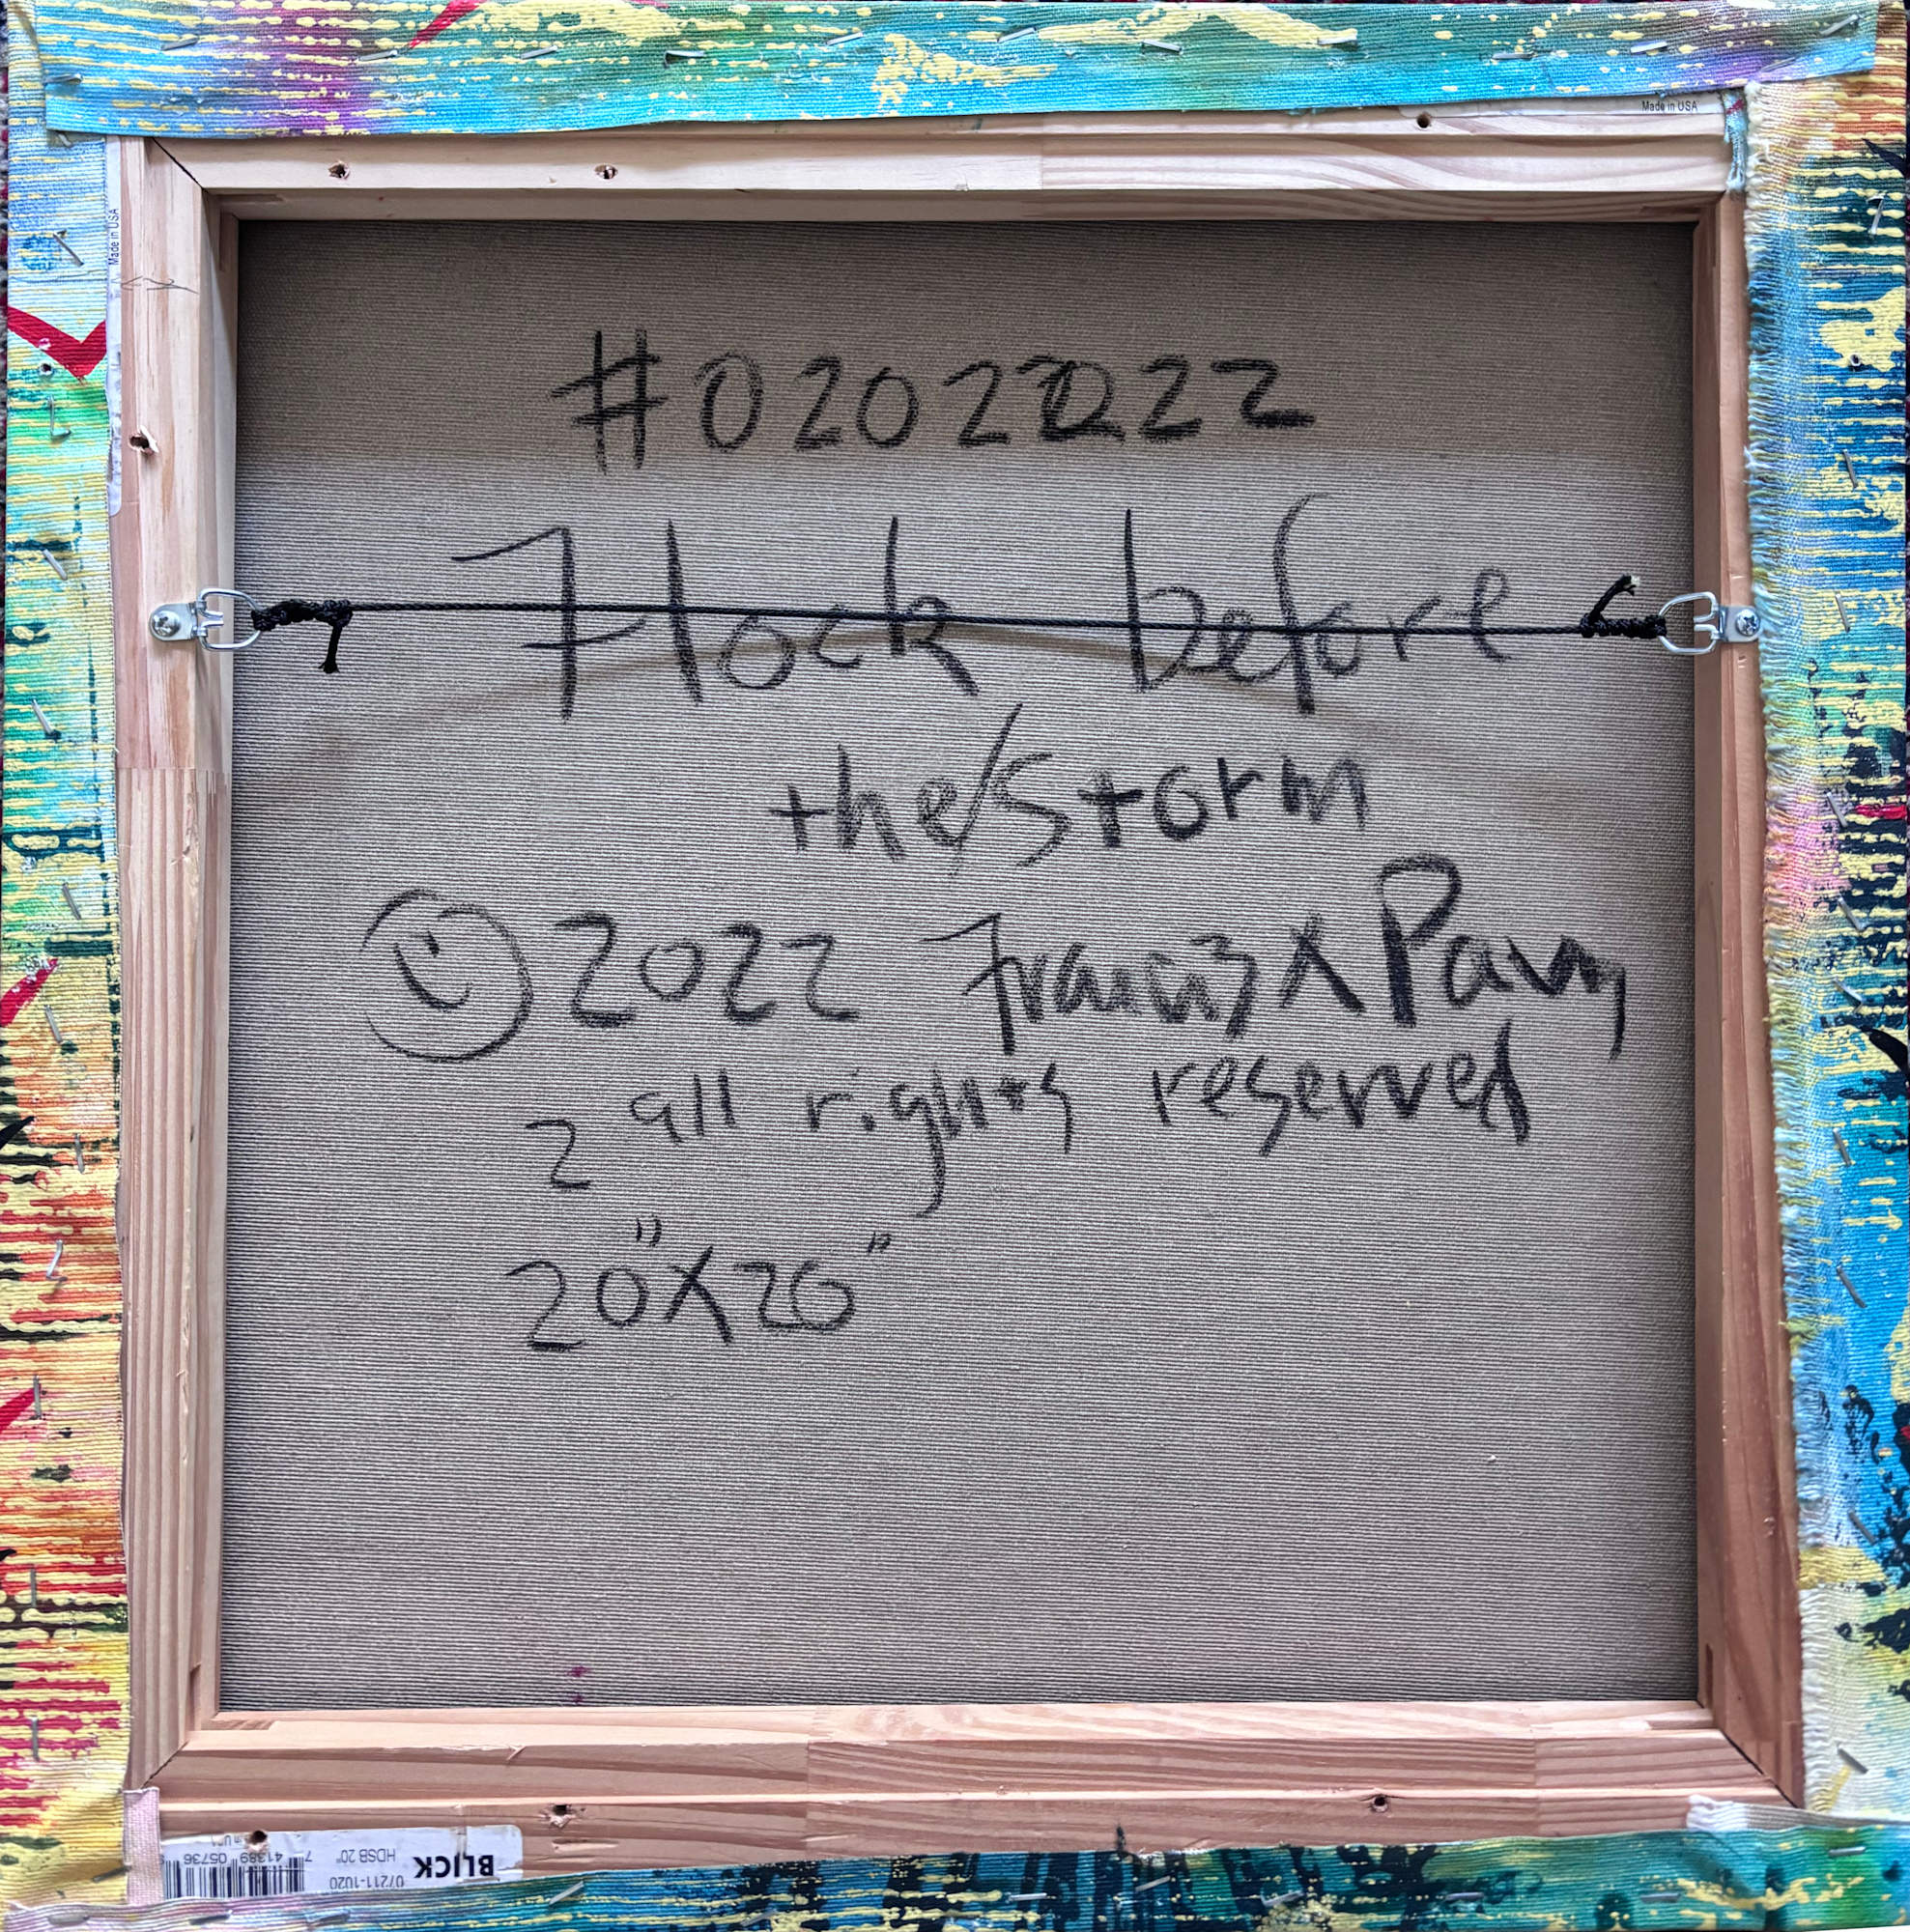 Made in USA
Made in USA
#02022222
Flock before
the/storm
© 2022 Francis X Pavy
all rights reserved
2
20"X20"
BLICK
07211-1020
HDSB 20"
7 41389 05736